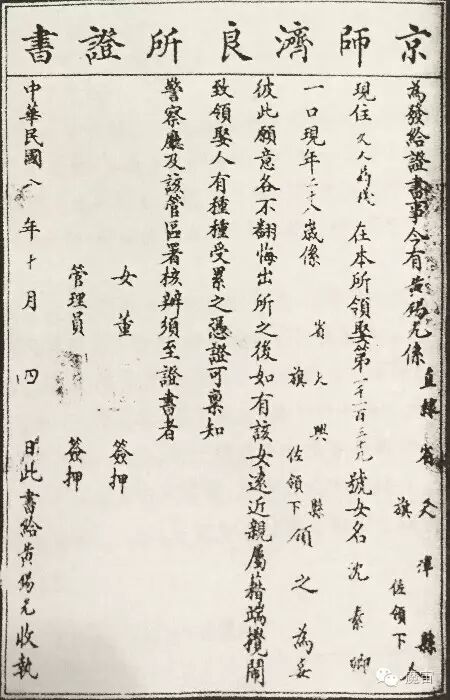 京師濟良所證書
為發給證書事今有黃錫九係直隸省天津縣人旗佐領下
現住在本所領娶第一千一百三十九號女名沈素卿
一口現年二十八歲係省大興縣旗佐領下領之為妾
彼此願意各不翻悔出所之後如有該女遠近親屬藉端攪鬧
致領娶人有種種受累之憑證可稟知
警察廳及該管區署核辦須至證書者
女董簽押
管理員簽押
中華民國八年十月四日此書給黃錫九收執